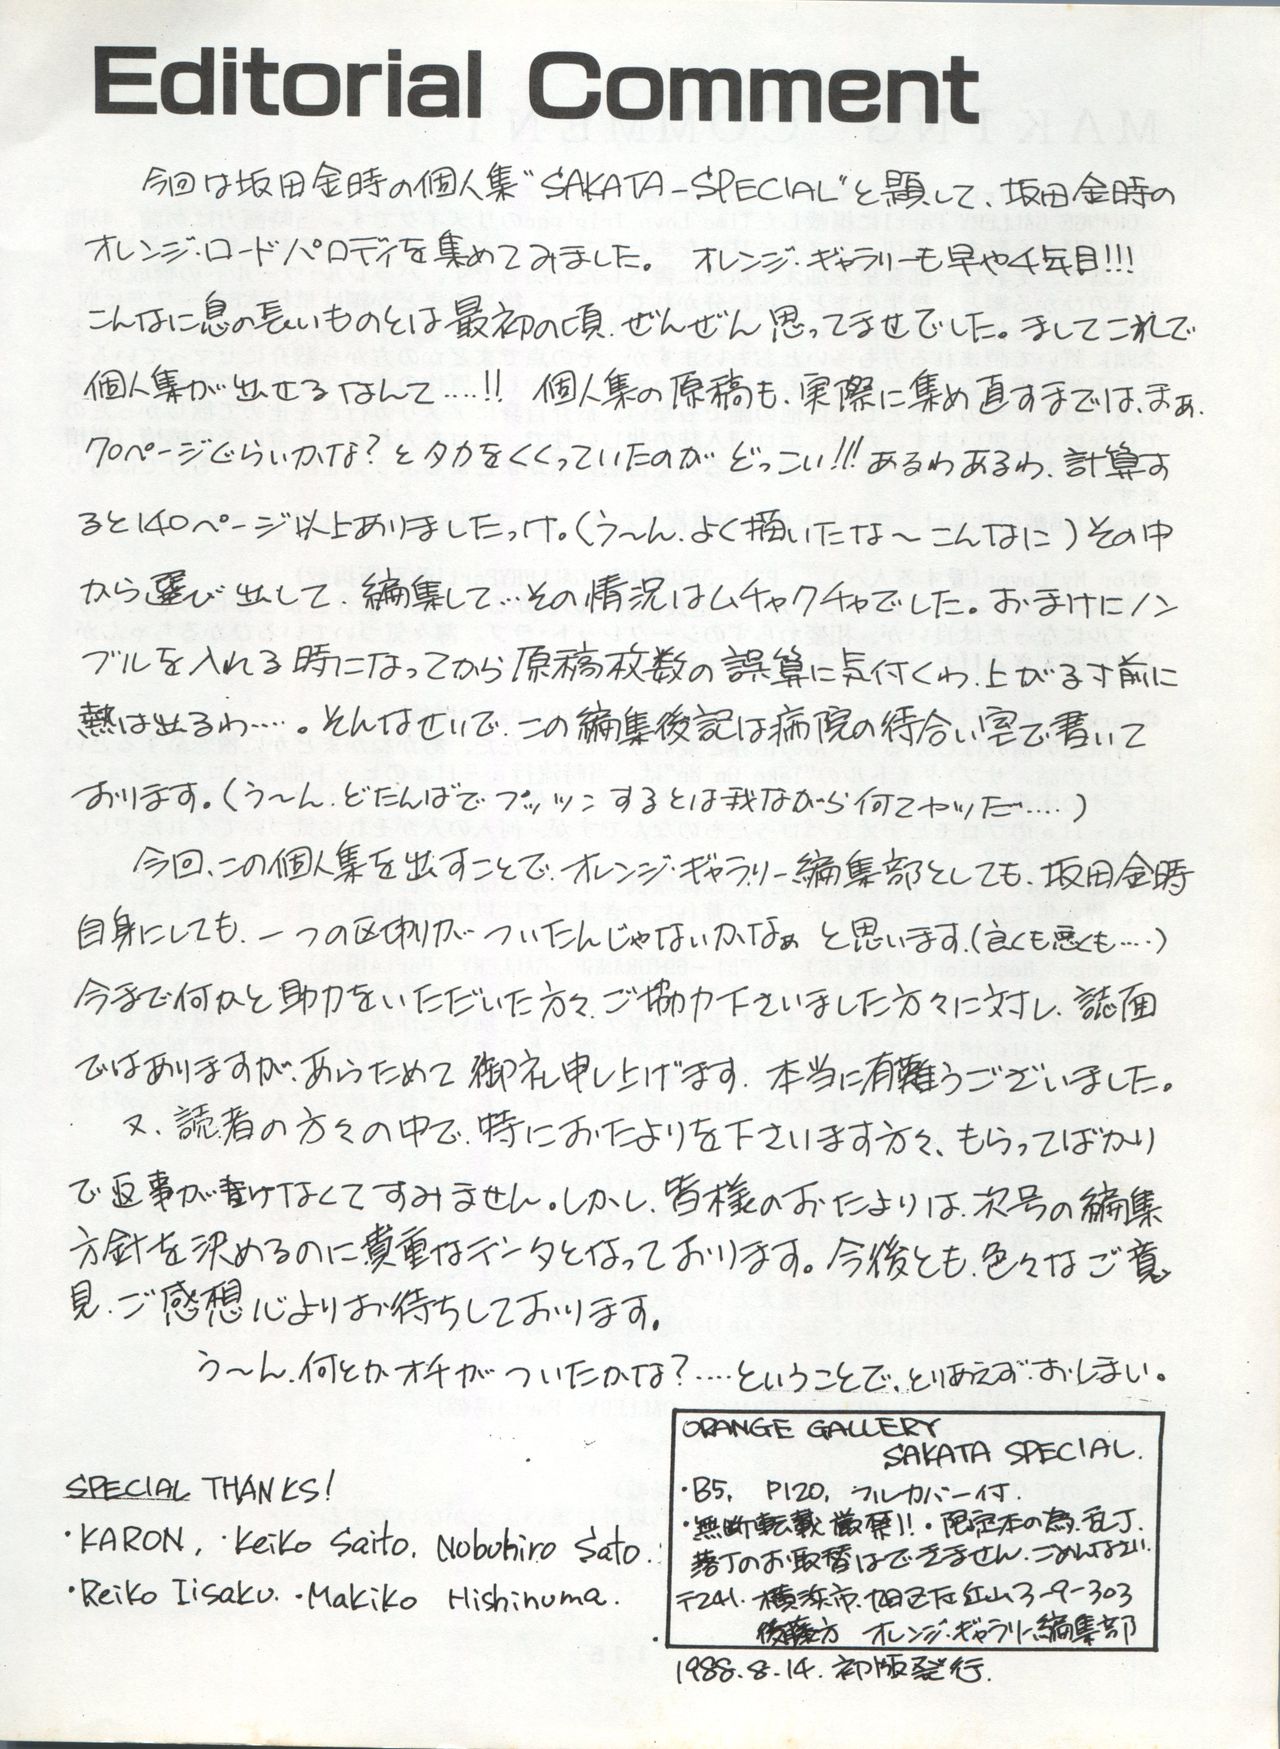 Editorial Comment
今回は坂田金時の個人集“SAKATA-SPECIAL”と題して、坂田金時の
オレンジ・ロードパロディを集めてみました。 オレンジ・ギャラリーも早や4年目!!!
こんなに息の長いものとは最初の頃、ぜんぜん思ってませでした。ましてこれで
個人集が出せるなんて……!! 個人集の原稿も、実際に集め直すまでは、まぁ、
70ページぐらいかな?とタカをくくっていたのがどっこい!!! あるわあるわ、計算す
ると140ページ以上ありましたっけ。(う〜ん、よく描いたな〜こんなに)その中
から選び出して、編集して…その情況はムチャクチャでした。おまけにノン
ブルを入れる時になってから原稿枚数の誤算に気付くわ、上がる寸前に
熱は出るわ……。そんなせいで、この編集後記は病院の待合い室で書いて
おります。(う〜ん、どたんばでプッツンするとは我ながら何てヤツだ……)
今回、この個人集を出すことで、オレンジ・ギャラリー編集部としても、坂田金時
自身にしても、一つの区切りがついたんじゃないかなぁ と思います。(良くも悪くも……)
今まで何かと助力をいただいた方々、ご協力下さいました方々に対し、誌面
ではありますが、あらためて御礼申し上げます。本当に有難うございました。
又、読者の方々の中で、特におたよりを下さいます方々、もらってばかり
で返事が書けなくてすみません。しかし、皆様のおたよりは、次号の編集
方針を決めるのに貴重なデータとなっております。今後とも、色々なご意
見、ご感想心よりお待ちしております。
う〜ん、何とかオチがついたかな?……ということで、とりあえず、おしまい。
SPECIAL THANKS!
・KARON, ・Keiko Saito, Nobuhiro Sato.
・Reiko Iisaku. ・Makiko Hishinuma.
ORANGE GALLERY
SAKATA SPECIAL.
・B5, P120, フルカバー付.
・無断転載厳禁!!・限定本の為、乱丁、
落丁のお取替はできません、ごめんなさい.
〒241. 横浜市旭区左近山3-9-303
後藤方 オレンジ・ギャラリー編集部
1988.8.14. 初版発行.